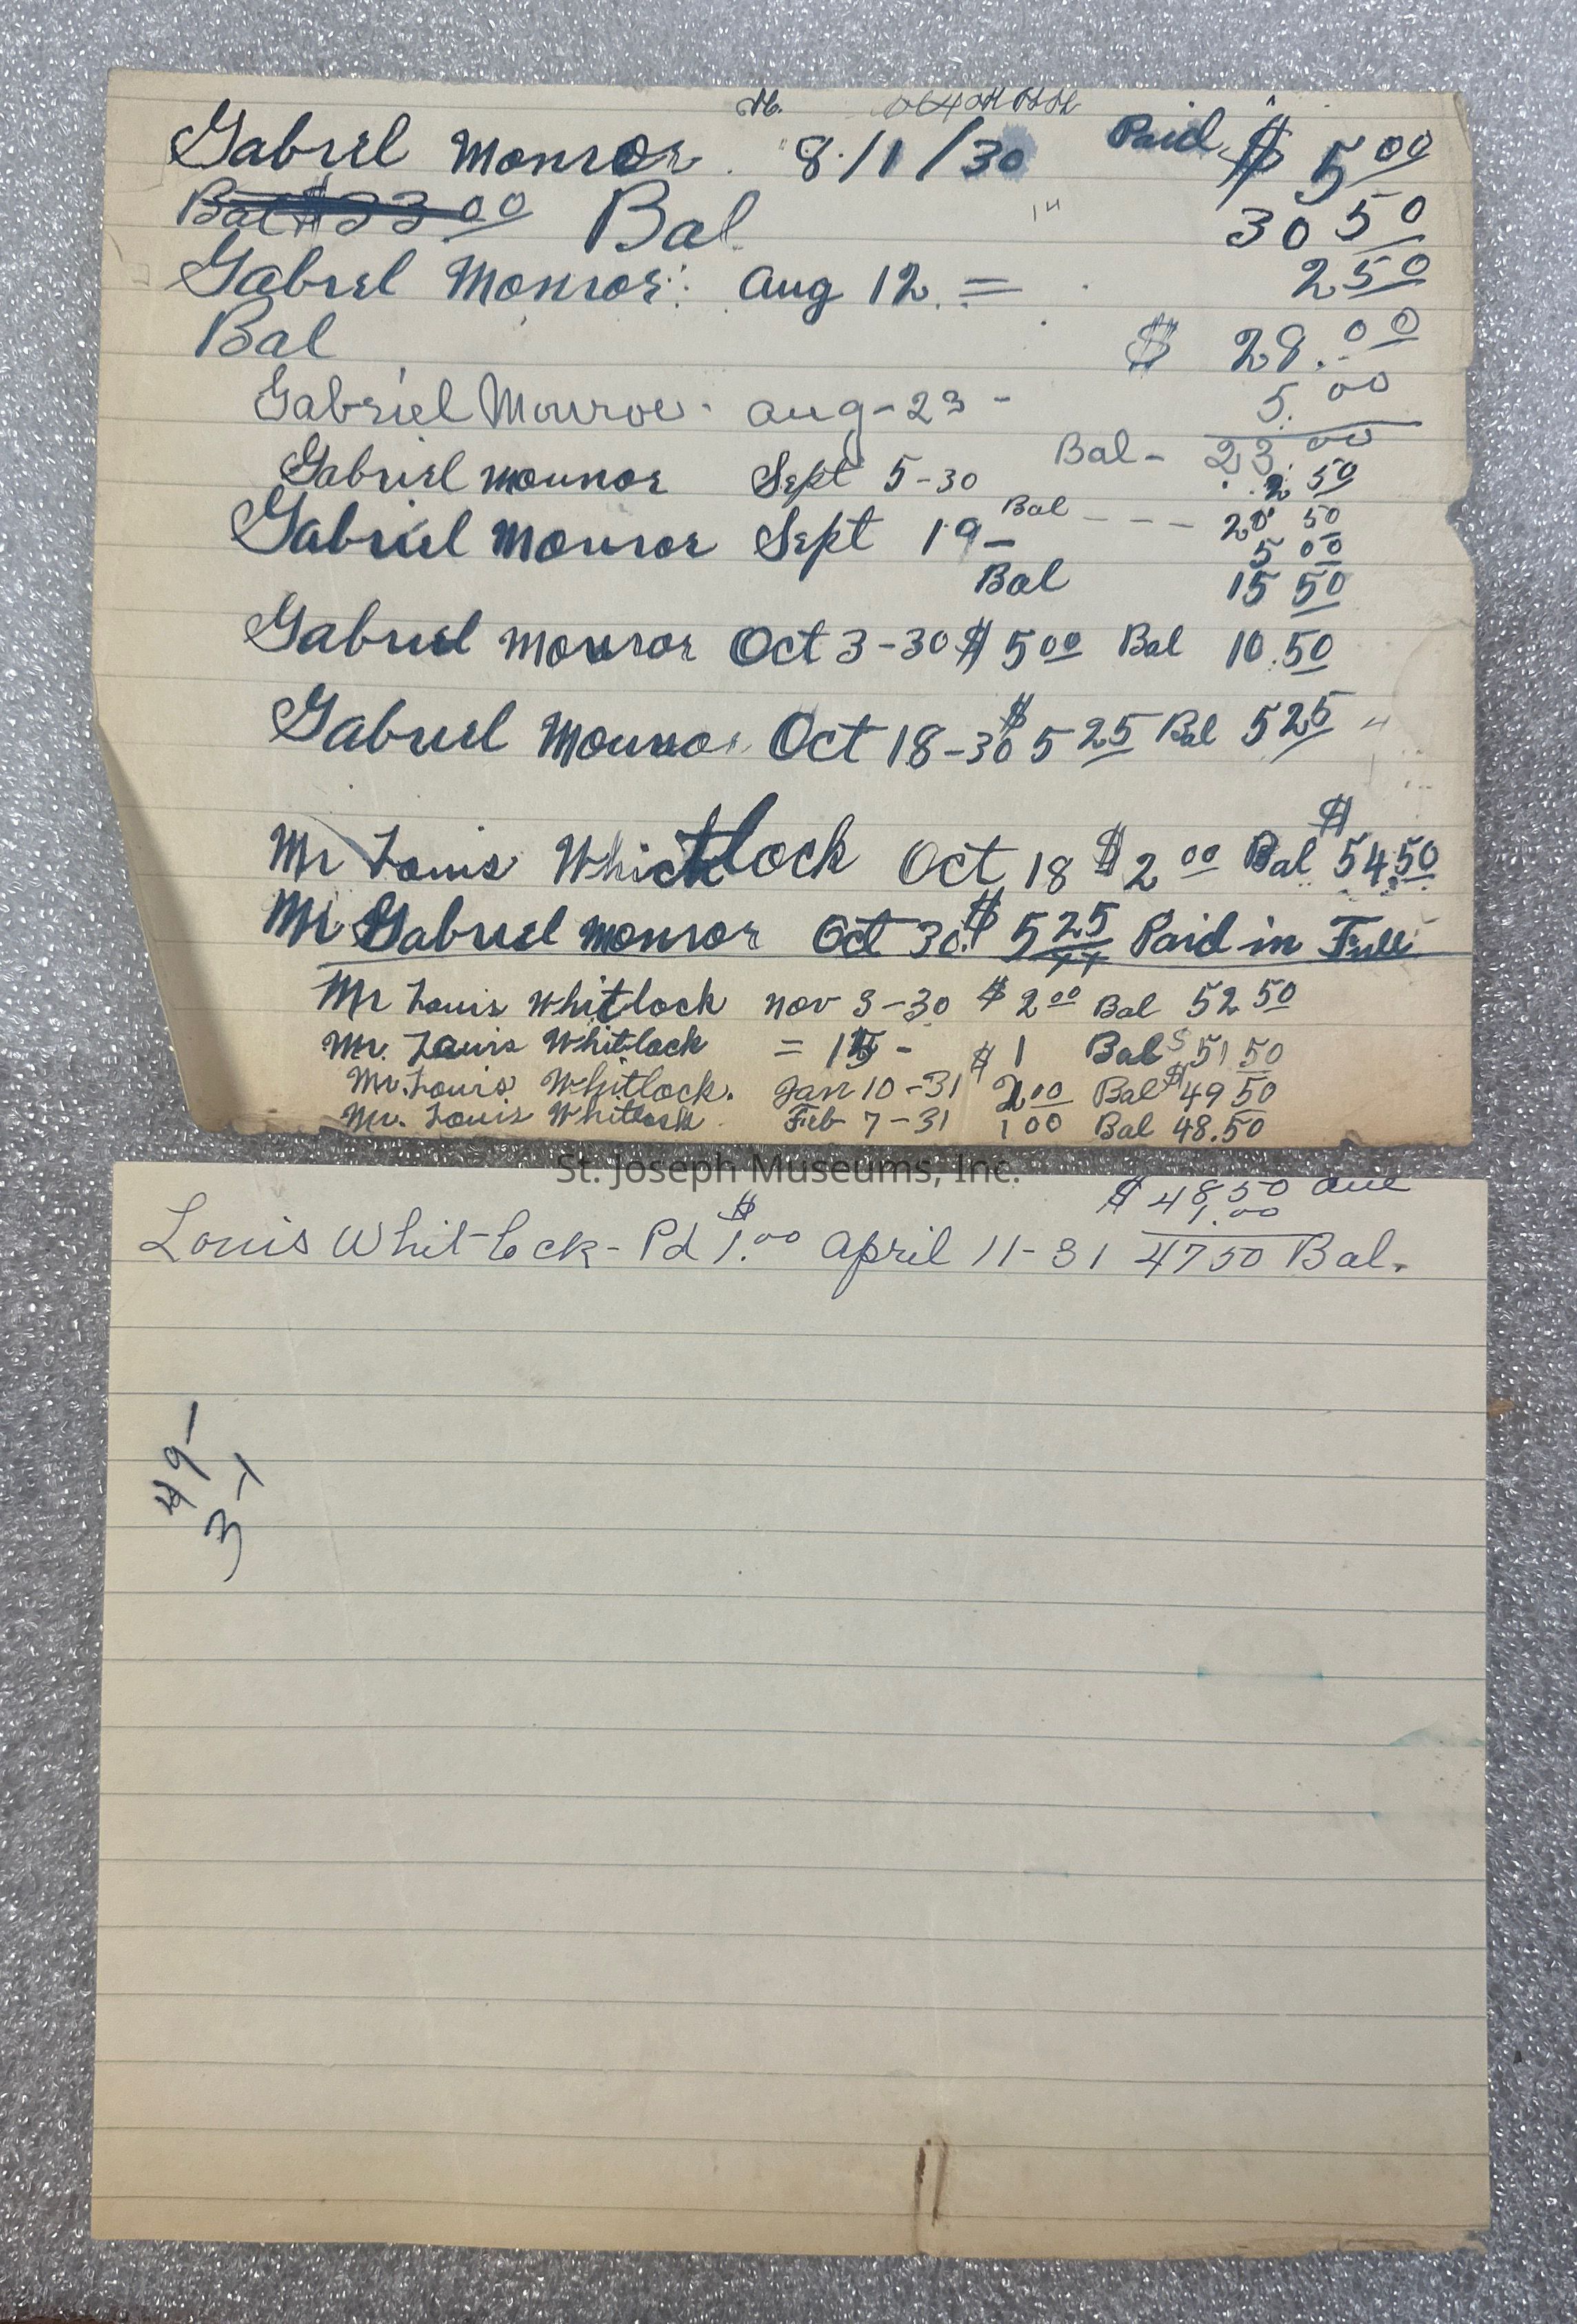 Gabriel Monroe. 8/1/30 Paid $ 5 00
Bal $33 00 Bal 30 50
Gabriel Monroe: Aug 12. = 2 50
Bal $ 28.00
Gabriel Monroe. Aug-23- 5.00
Bal- 23.00
Gabriel Mounoe Sept 5-30 2 50
Bal --- 20 50
Gabriel Monroe Sept 19- 5 00
Bal 15 50
Gabriel Monroe Oct 3-30 $ 5 00 Bal 10.50
Gabriel Monroe Oct 18-30 $ 5 25 Bal 5 25
Mr Louis Whicktlock Oct 18 $ 2 00 Bal $ 54.50
Mr Gabriel Monroe Oct 30. $ 5 25 Paid in Full
Mr Louis Whitlock Nov 3-30 $ 2 00 Bal 52 50
Mr. Louis Whitlock = 15- $ 1 Bal $ 51 50
Mr. Louis Whitlock. Jan 10-31 2 00 Bal $ 49 50
Mr. Louis Whitlock. Feb 7-31 1 00 Bal 48.50
St. Joseph Museums, Inc.
$ 48.50 due
1.00
Louis Whitlock- Pd $ 1.00 April 11-31 47 50 Bal.
49-
3-1